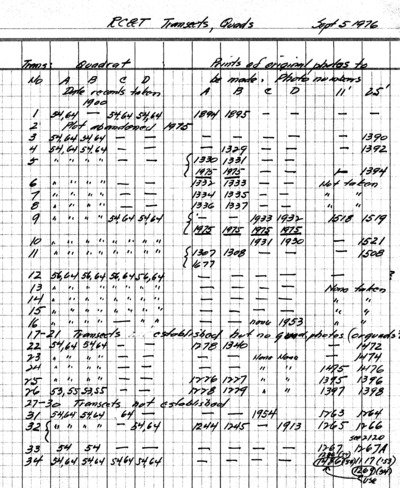 RC&T Transects, Quads Sept 5 1976
Trans: Quadrat Prints of original photos to
No A B C D be made. Photo numbers
Date records taken A B C D 11' 25'
1900
1 54,64 — 54,64 54,64 1894 1895 — — — —
2 Plot abandoned 1975
3 54,64 54,64 — — — — — — — 1390
4 54,64 54,64 — — — 1329 — — — 1392
5 " " " " — — 1330 1331 — — — 1394
1975 1975
6 " " " " — — 1332 1333 — — Not taken
7 " " " " — — 1334 1335 — — " "
8 " " " " — — 1336 1337 — — " "
9 " " " " 54,64 54,64 — — 1933 1932 1518 1519
1975 1975 1975 1975
10 " " " " " " " " — — 1931 1930 — 1521
11 " " " " " " " " 1307 1308 — — — 1508
1677
12 56,64 56,64 56,64 56,64 — — — — — ?
13 " " " " " " " " — — — — None taken
14 " " " " " " " " — — — — " "
15 " " " " " " " " — — — — " "
16 " " " " " " — — none 1953 " "
17-21 Transects established but no photos (or quads?)
22 54,64 54,64 — — 1278 1340 — — — 1472
23 " " " " — — — — None None — 1474
24 " " " " — — — — " " 1475 1476
25 " " " " — — 1276 1277 " " 1395 1396
26 53,55 53,55 — — 1278 1279 " " 1397 1398
27-30 Transects not established
31 54,64 54,64 64 — — — 1954 1263 1264
32 " " " " — 54,64 1244 1245 — 1913 1265 1266
see 2120
33 54 54 — — — — — — 1267 1267A
34 54,64 54,64 54,64 54,64 — — — — 1117 ('53)
1269 ('54)
use